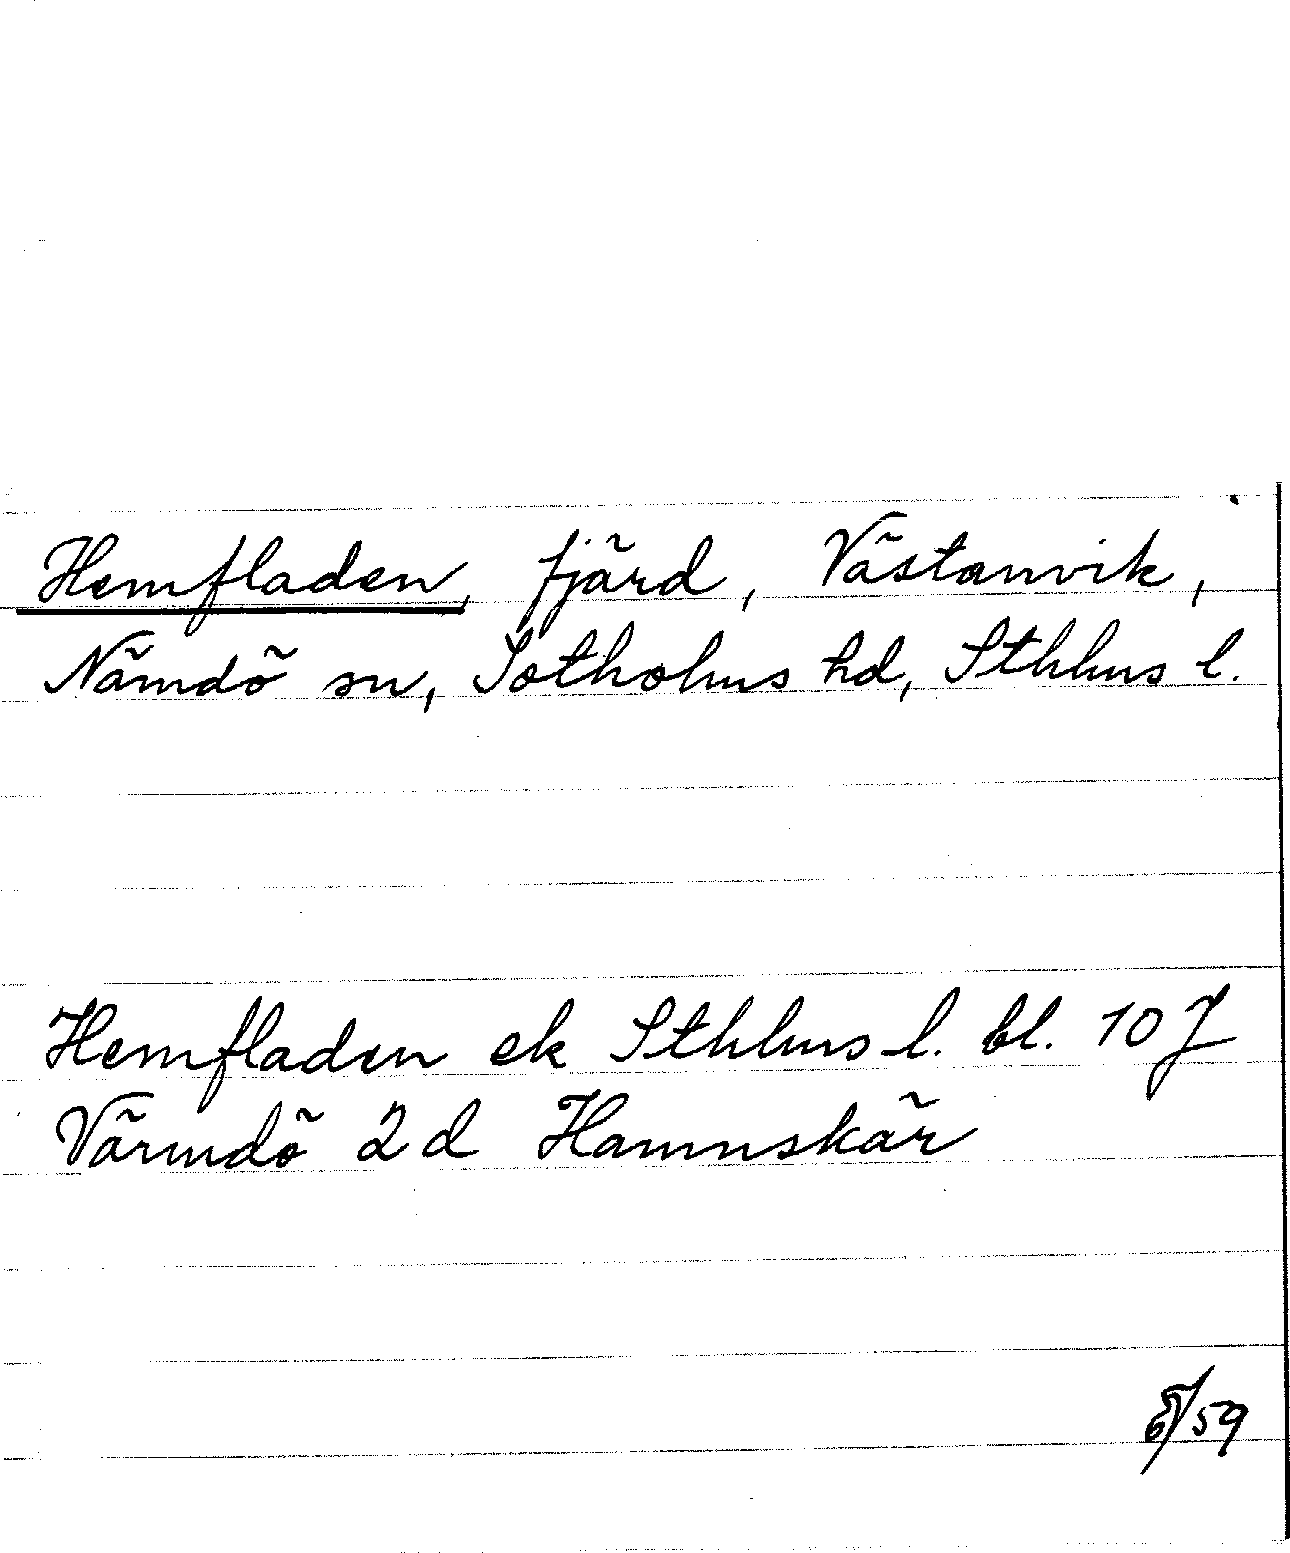 Hemfladen, fjärd, Västanvik,
Nämdö sn, Sotholms hd, Sthlms l.
Hemfladen ek Sthlms l. bl. 10 J
Värmdö 2 d Hamnskär
/59